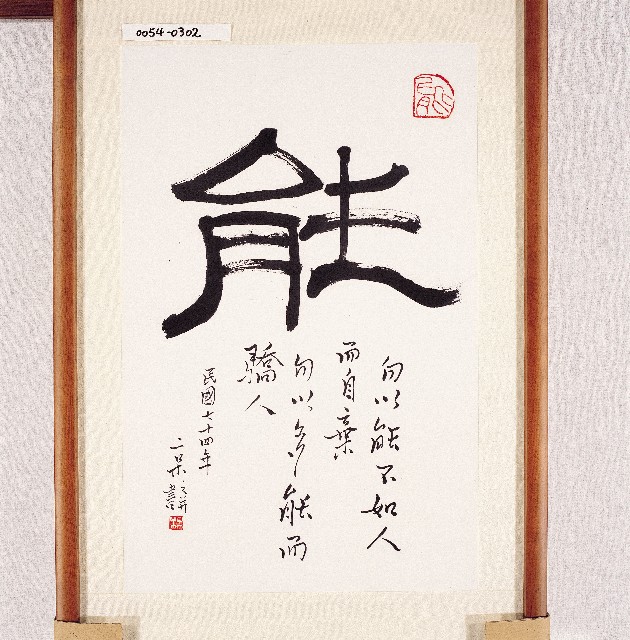 0054-0302
能
勿以能不如人
而自棄
勿以多能而
驕人
民國七十四年
二呆書